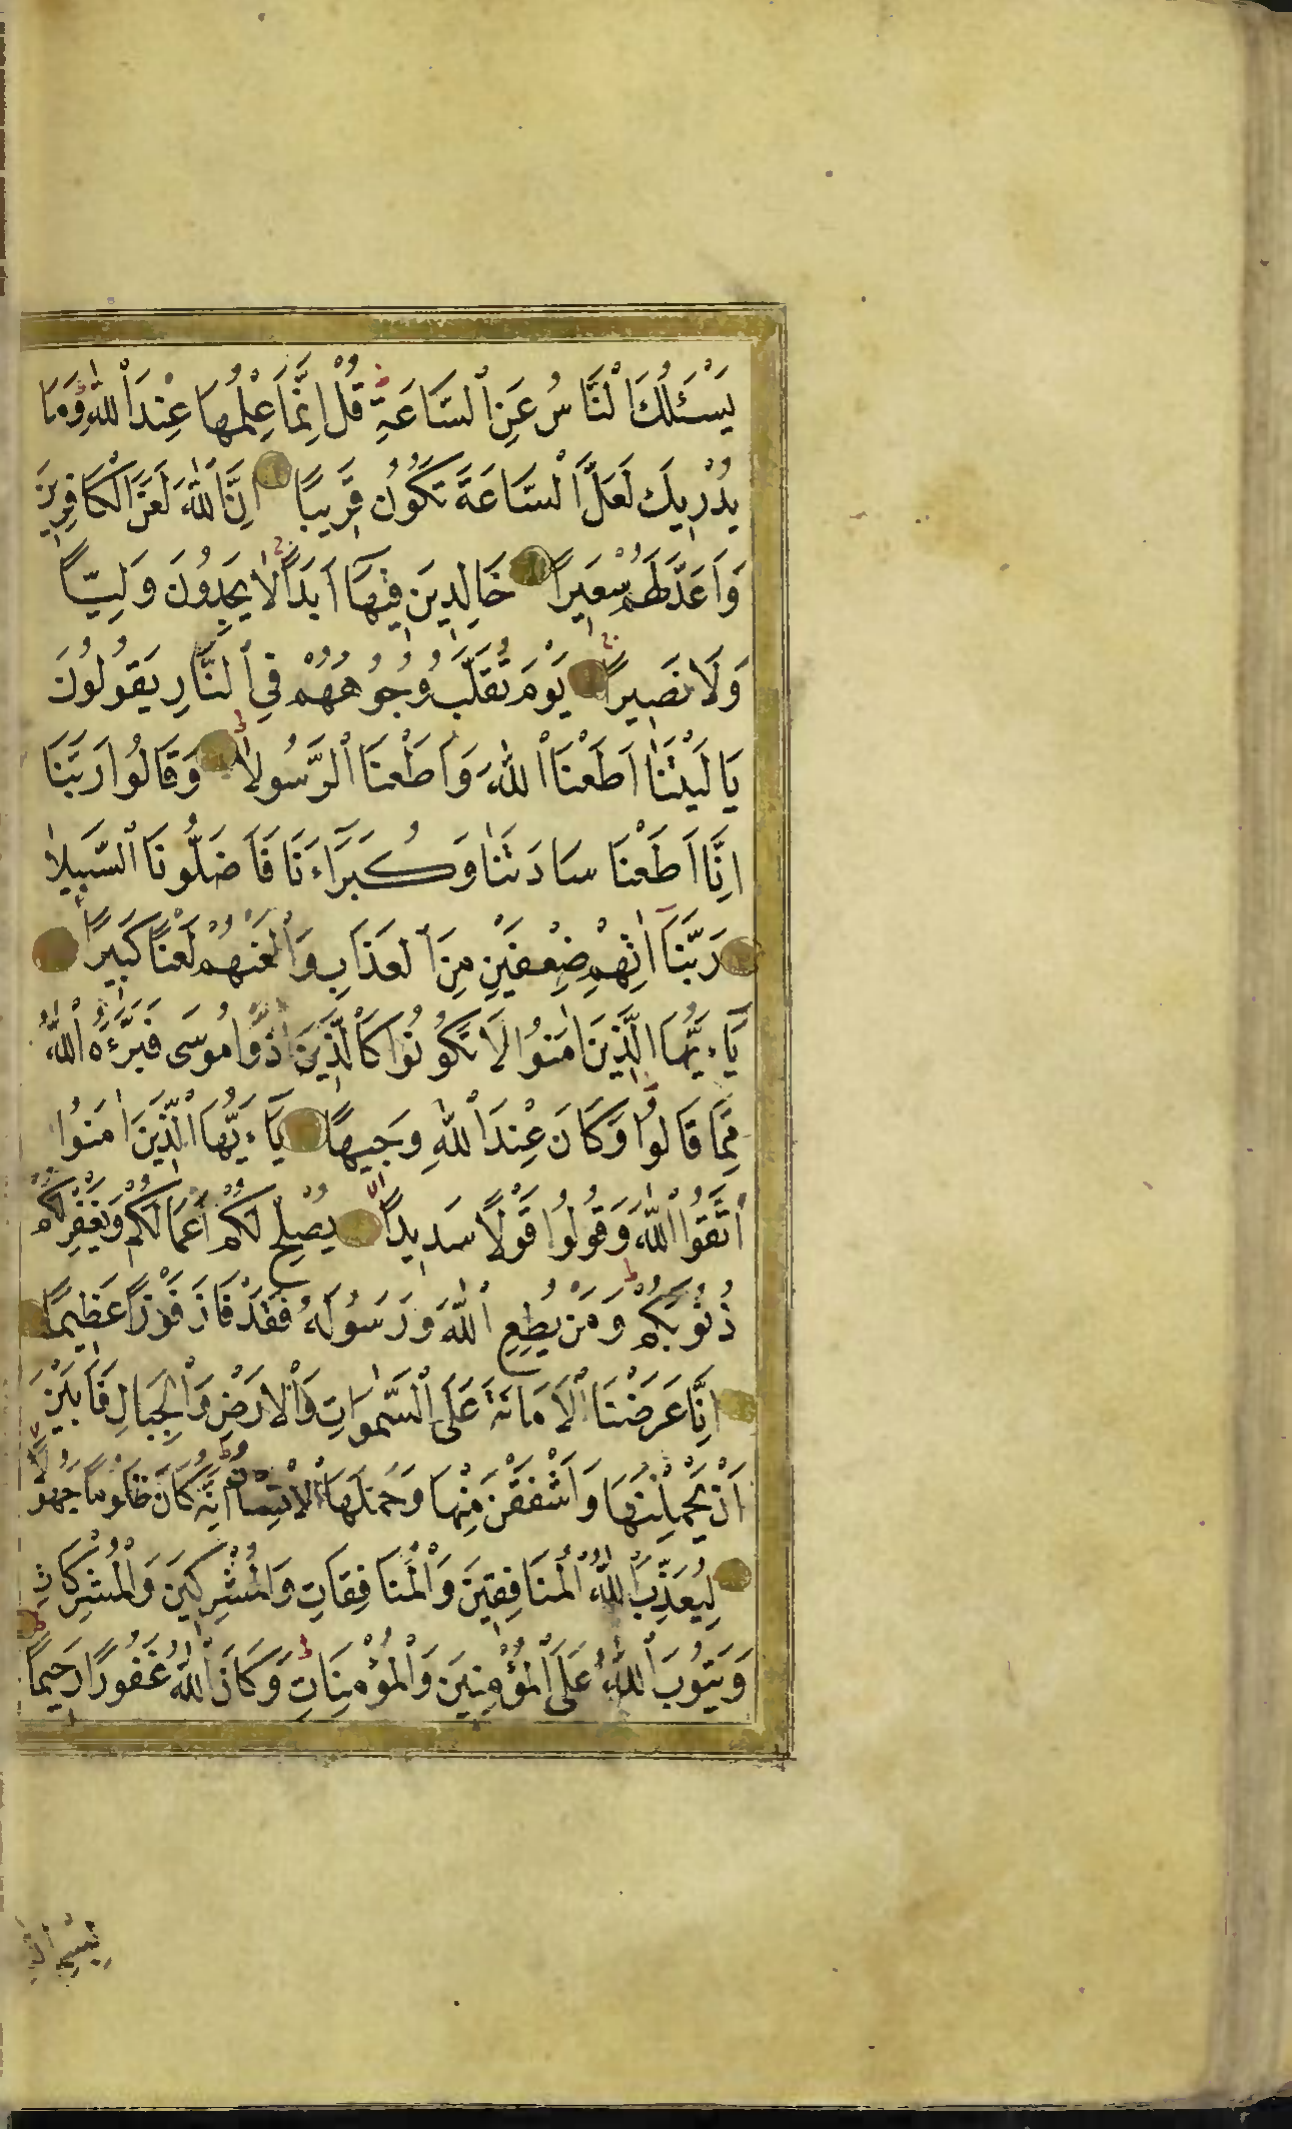 يَسْـَٔلُكَ ٱلنَّاسُ عَنِ ٱلسَّاعَةِ قُلْ اِنَّمَا عِلْمُهَا عِنْدَ ٱللّٰهِ وَمَا
يُدْرِيكَ لَعَلَّ ٱلسَّاعَةَ تَكُونُ قَرِيبًا اِنَّ ٱللّٰهَ لَعَنَ ٱلْكَافِرِينَ
وَاَعَدَّ لَهُمْ سَعِيرًا خَالِدِينَ فِيهَآ اَبَدًا لَا يَجِدُونَ وَلِيًّا
وَلَا نَصِيرًا يَوْمَ تُقَلَّبُ وُجُوهُهُمْ فِي ٱلنَّارِ يَقُولُونَ
يَا لَيْتَنَآ اَطَعْنَا ٱللّٰهَ وَاَطَعْنَا ٱلرَّسُولَا وَقَالُوا رَبَّنَا
اِنَّا اَطَعْنَا سَادَتَنَا وَكُبَرَآءَنَا فَاَضَلُّونَا ٱلسَّبِيلَا
رَبَّنَآ اٰتِهِمْ ضِعْفَيْنِ مِنَ ٱلْعَذَابِ وَٱلْعَنْهُمْ لَعْنًا كَبِيرًا
يَآءَيُّهَا ٱلَّذِينَ اٰمَنُوا لَا تَكُونُوا كَٱلَّذِينَ اٰذَوْا مُوسَى فَبَرَّءَهُ ٱللّٰهُ
مِمَّا قَالُوا وَكَانَ عِنْدَ ٱللّٰهِ وَجِيهًا يَآءَيُّهَا ٱلَّذِينَ اٰمَنُوا
ٱتَّقُوا ٱللّٰهَ وَقُولُوا قَوْلًا سَدِيدًا يُصْلِحْ لَكُمْ اَعْمَالَكُمْ وَيَغْفِرْ لَكُمْ
ذُنُوبَكُمْ وَمَنْ يُطِعِ ٱللّٰهَ وَرَسُولَهُ فَقَدْ فَازَ فَوْزًا عَظِيمًا
اِنَّا عَرَضْنَا ٱلْاَمَانَةَ عَلَى ٱلسَّمٰوَاتِ وَٱلْاَرْضِ وَٱلْجِبَالِ فَاَبَيْنَ
اَنْ يَحْمِلْنَهَا وَاَشْفَقْنَ مِنْهَا وَحَمَلَهَا ٱلْاِنْسَانُ اِنَّهُ كَانَ ظَلُومًا جَهُولًا
لِيُعَذِّبَ ٱللّٰهُ ٱلْمُنَافِقِينَ وَٱلْمُنَافِقَاتِ وَٱلْمُشْرِكِينَ وَٱلْمُشْرِكَاتِ
وَيَتُوبَ ٱللّٰهُ عَلَى ٱلْمُؤْمِنِينَ وَٱلْمُؤْمِنَاتِ وَكَانَ ٱللّٰهُ غَفُورًا رَحِيمًا